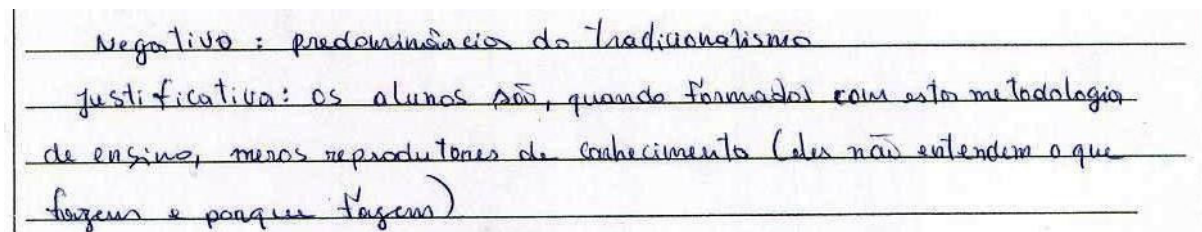 Negativo: predominância do tradicionalismo
Justificativa: os alunos são, quando formados com esta metodologia
de ensino, meros reprodutores de conhecimento (eles não entendem o que
fazem e porque fazem)